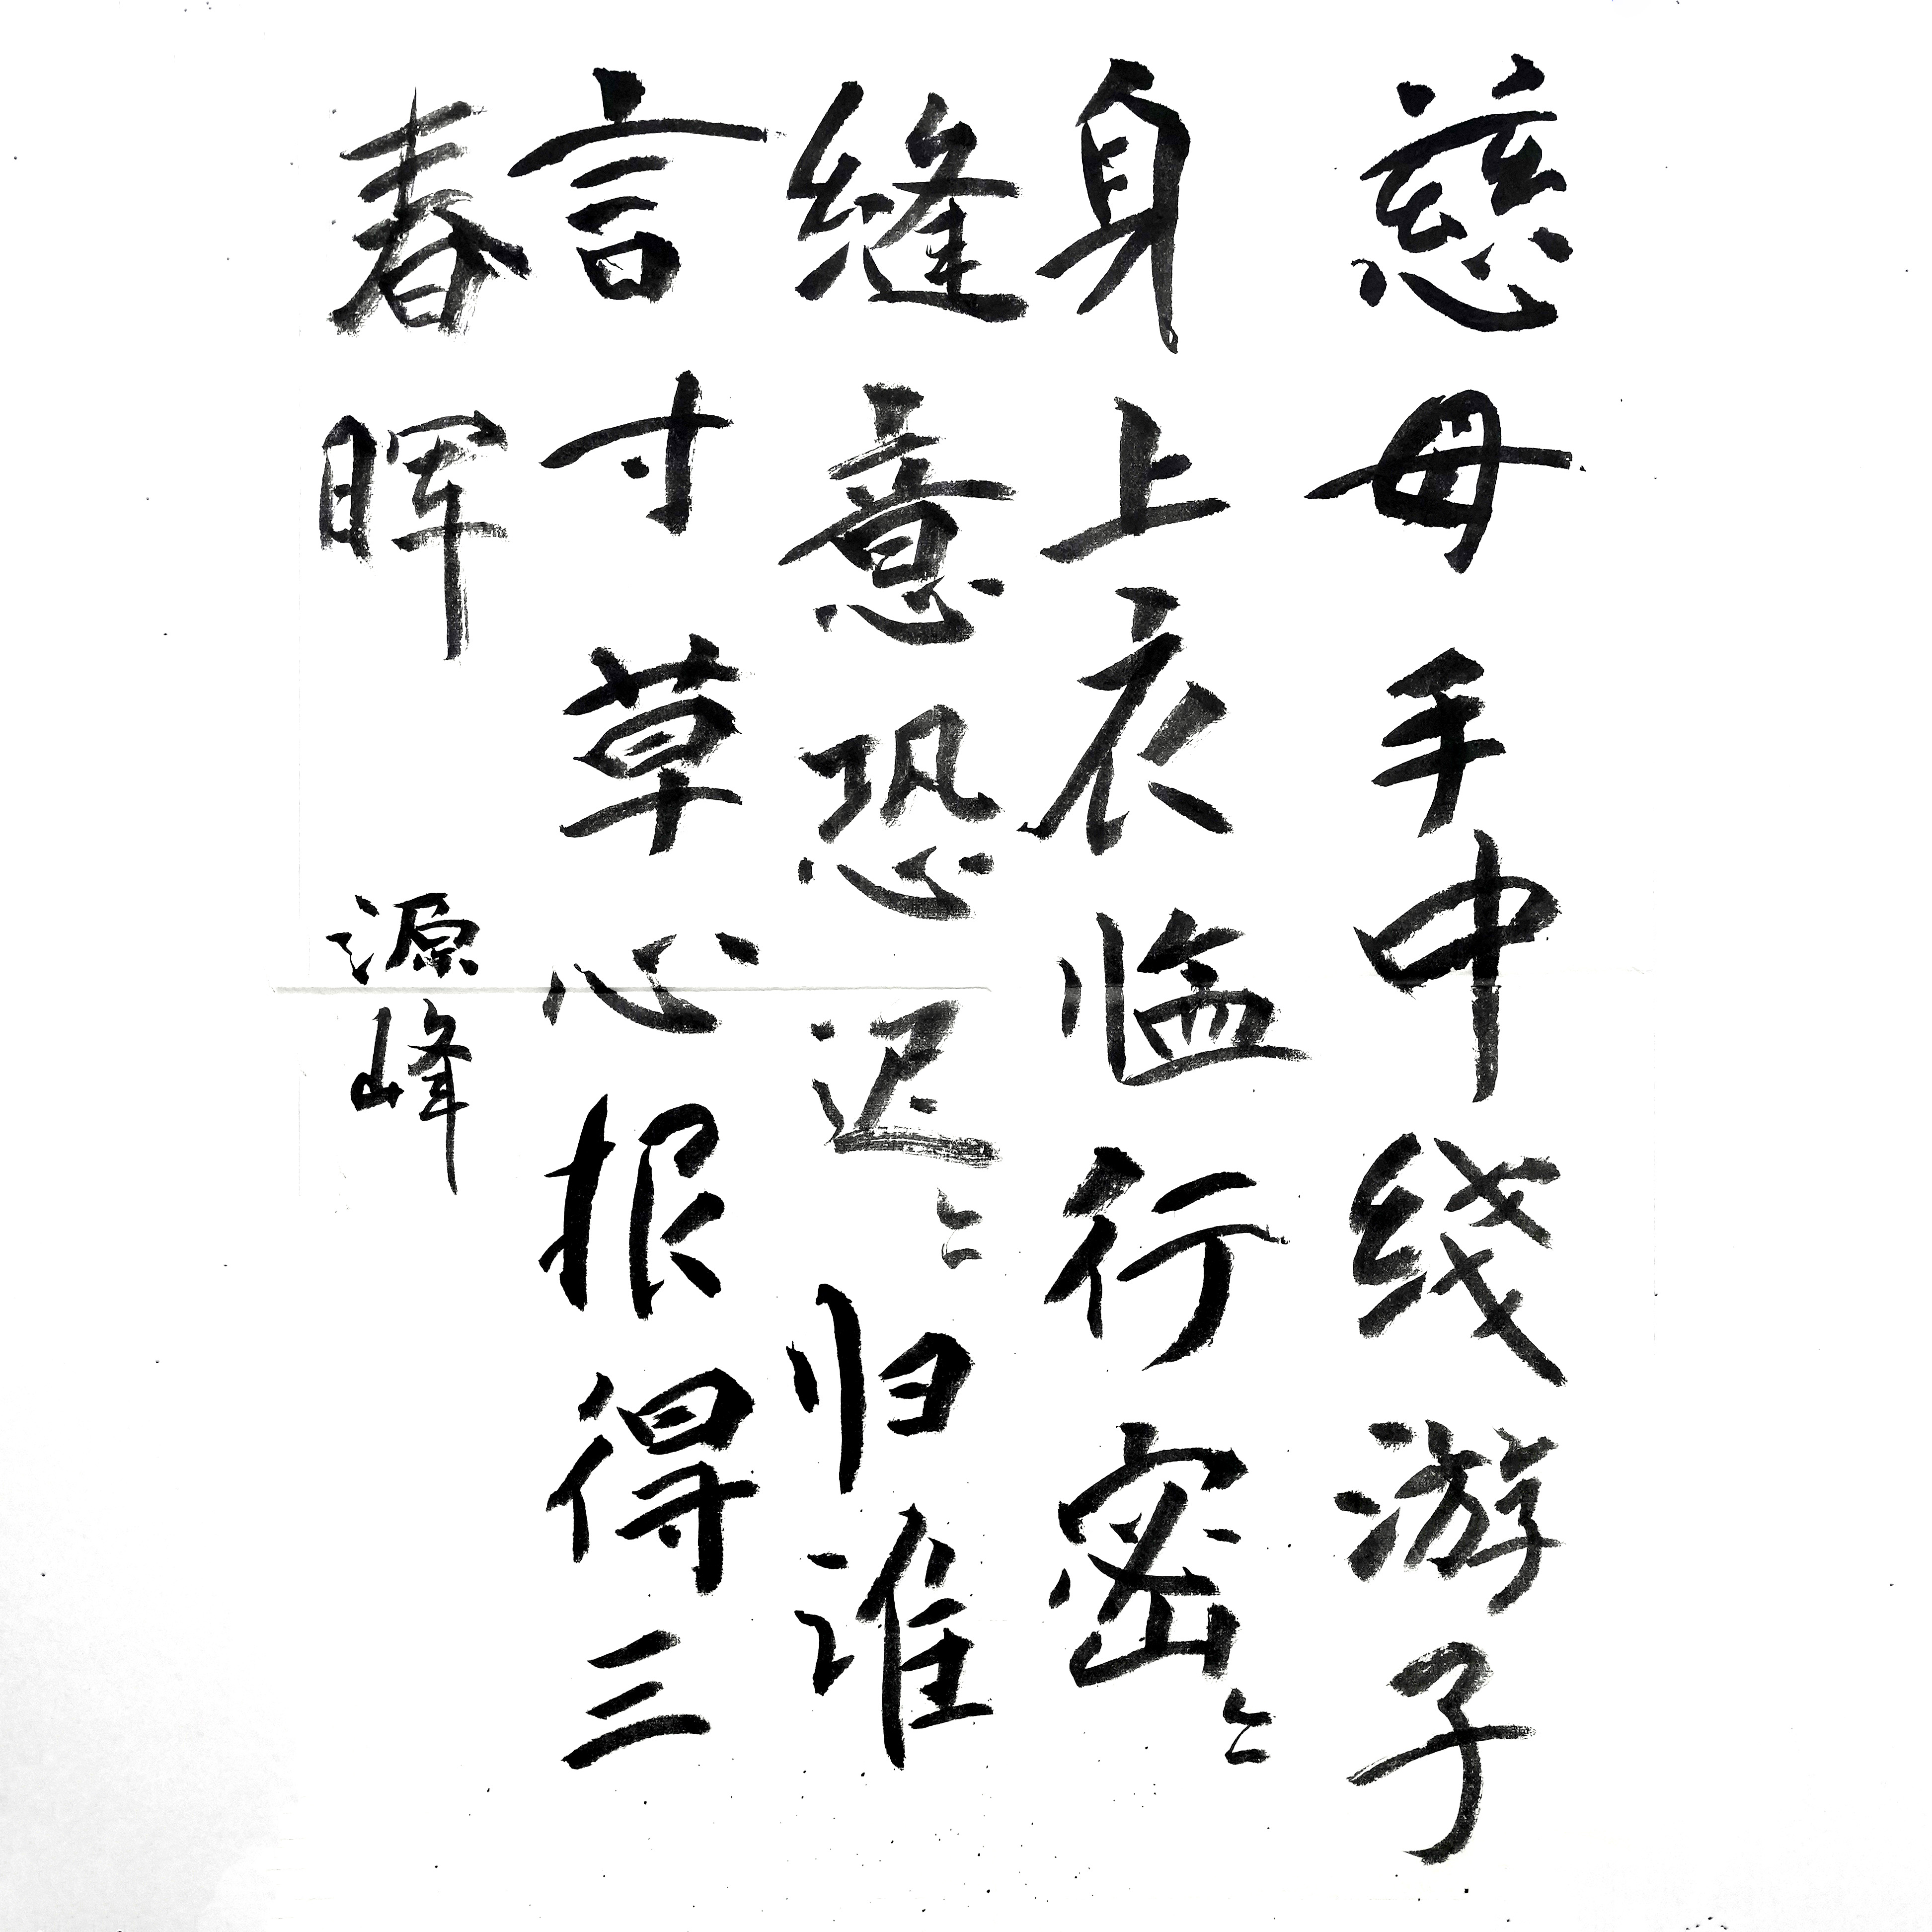 慈母手中线游子
身上衣临行密〻
缝意恐迟〻归谁
言寸草心报得三
春晖
源峰